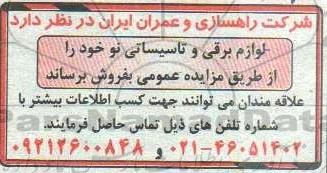 شرکت راهسازی و عمران ایران در نظر دارد
لوازم برقی و تاسیساتی نو خود را
از طریق مزایده عمومی بفروش برساند
علاقه مندان می توانند جهت کسب اطلاعات بیشتر با
شماره تلفن های ذیل تماس حاصل فرمایند.
۰۲۱-۴۶۰۵۱۴۰۲ و ۰۹۲۱۲۶۰۰۸۴۸